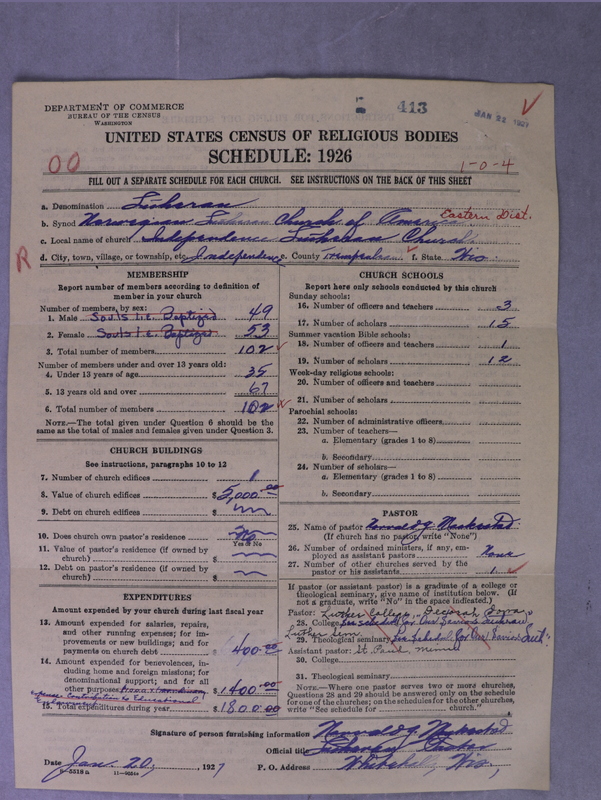 DEPARTMENT OF COMMERCE
BUREAU OF THE CENSUS
WASHINGTON
413
JAN 22 1927
UNITED STATES CENSUS OF RELIGIOUS BODIES
SCHEDULE: 1926
00
1-0-4
FILL OUT A SEPARATE SCHEDULE FOR EACH CHURCH. SEE INSTRUCTIONS ON THE BACK OF THIS SHEET
a. Denomination Lutheran
b. Synod Norwegian Lutheran Church of America Eastern Dist.
c. Local name of church Independence Lutheran Church
R
d. City, town, village, or township, etc. Independence e. County Trempealeau f. State Wis.
MEMBERSHIP
Report number of members according to definition of member in your church
Number of members, by sex:
1. Male Souls i.e. Baptized 49
2. Female Souls i.e. Baptized 53
3. Total number of members 102
Number of members under and over 13 years old:
4. Under 13 years of age 35
5. 13 years old and over 67
6. Total number of members 102
NOTE.—The total given under Question 6 should be the same as the total of males and females given under Question 3.
CHURCH BUILDINGS
See instructions, paragraphs 10 to 12
7. Number of church edifices 1
8. Value of church edifices $5,000.00
9. Debt on church edifices $
10. Does church own pastor's residence No
Yes or No
11. Value of pastor's residence (if owned by church) $
12. Debt on pastor's residence (if owned by church) $
EXPENDITURES
Amount expended by your church during last fiscal year
13. Amount expended for salaries, repairs, and other running expenses; for improvements or new buildings; and for payments on church debt $400.00
14. Amount expended for benevolences, including home and foreign missions; for denominational support; and for all other purposes $1400.00
15. Total expenditures during year $1800.00
CHURCH SCHOOLS
Report here only schools conducted by this church
Sunday schools:
16. Number of officers and teachers 3
17. Number of scholars 15
Summer vacation Bible schools:
18. Number of officers and teachers 1
19. Number of scholars 12
Week-day religious schools:
20. Number of officers and teachers
21. Number of scholars
Parochial schools:
22. Number of administrative officers
23. Number of teachers—
a. Elementary (grades 1 to 8)
b. Secondary
24. Number of scholars—
a. Elementary (grades 1 to 8)
b. Secondary
PASTOR
25. Name of pastor
(If church has no pastor, write "None")
26. Number of ordained ministers, if any, employed as assistant pastors None
27. Number of other churches served by the pastor or his assistants 1
If pastor (or assistant pastor) is a graduate of a college or theological seminary, give name of institution below. (If not a graduate, write "No" in the space indicated.)
Pastor: Luther College, Decorah Iowa
28. College See schedule for Our Saviors Lutheran
Luther Sem.
29. Theological seminary See schedule for Our Saviors Luth
Assistant pastor: St. Paul Minn
30. College
31. Theological seminary
NOTE.—Where one pastor serves two or more churches, Questions 28 and 29 should be answered only on the schedule for one of the churches; on the schedules for the other churches, write "See schedule for church."
Signature of person furnishing information
Official title Lutheran Pastor
Date Jan. 20, 1927 P. O. Address Whitehall, Wis.,